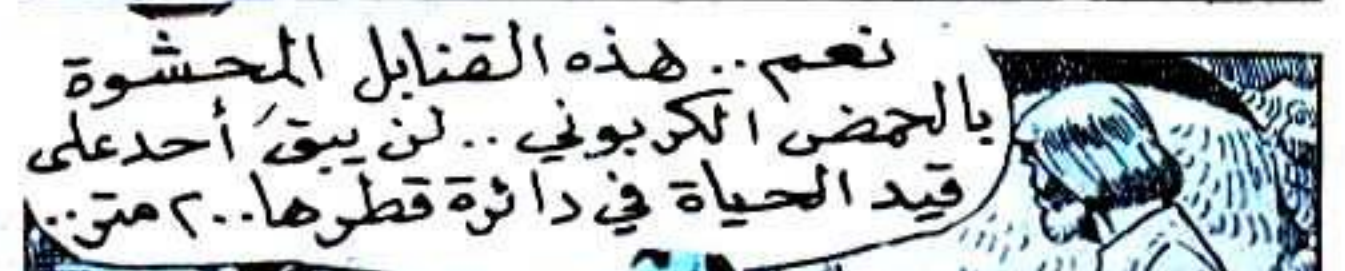 نعم.. هذه القنابل المحشوة
بالحمض الكربوني.. لن يبقَ أحد على
قيد الحياة في دائرة قطرها ٢٠٠ متر..